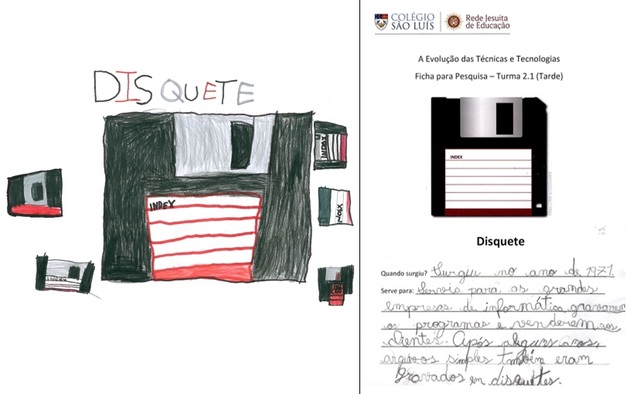 DISQUETE
INDEX
INDEX
INDEX
COLÉGIO
SÃO LUÍS
Rede Jesuíta
de Educação
A Evolução das Técnicas e Tecnologias
Ficha para Pesquisa – Turma 2.1 (Tarde)
INDEX
Disquete
Quando surgiu? Surgiu no ano de 1971.
Serve para: Servia para as grandes
empresas de informática gravarem
os programas e venderem aos
clientes. Após alguns anos,
arquivos simples também eram
gravados em disquetes.